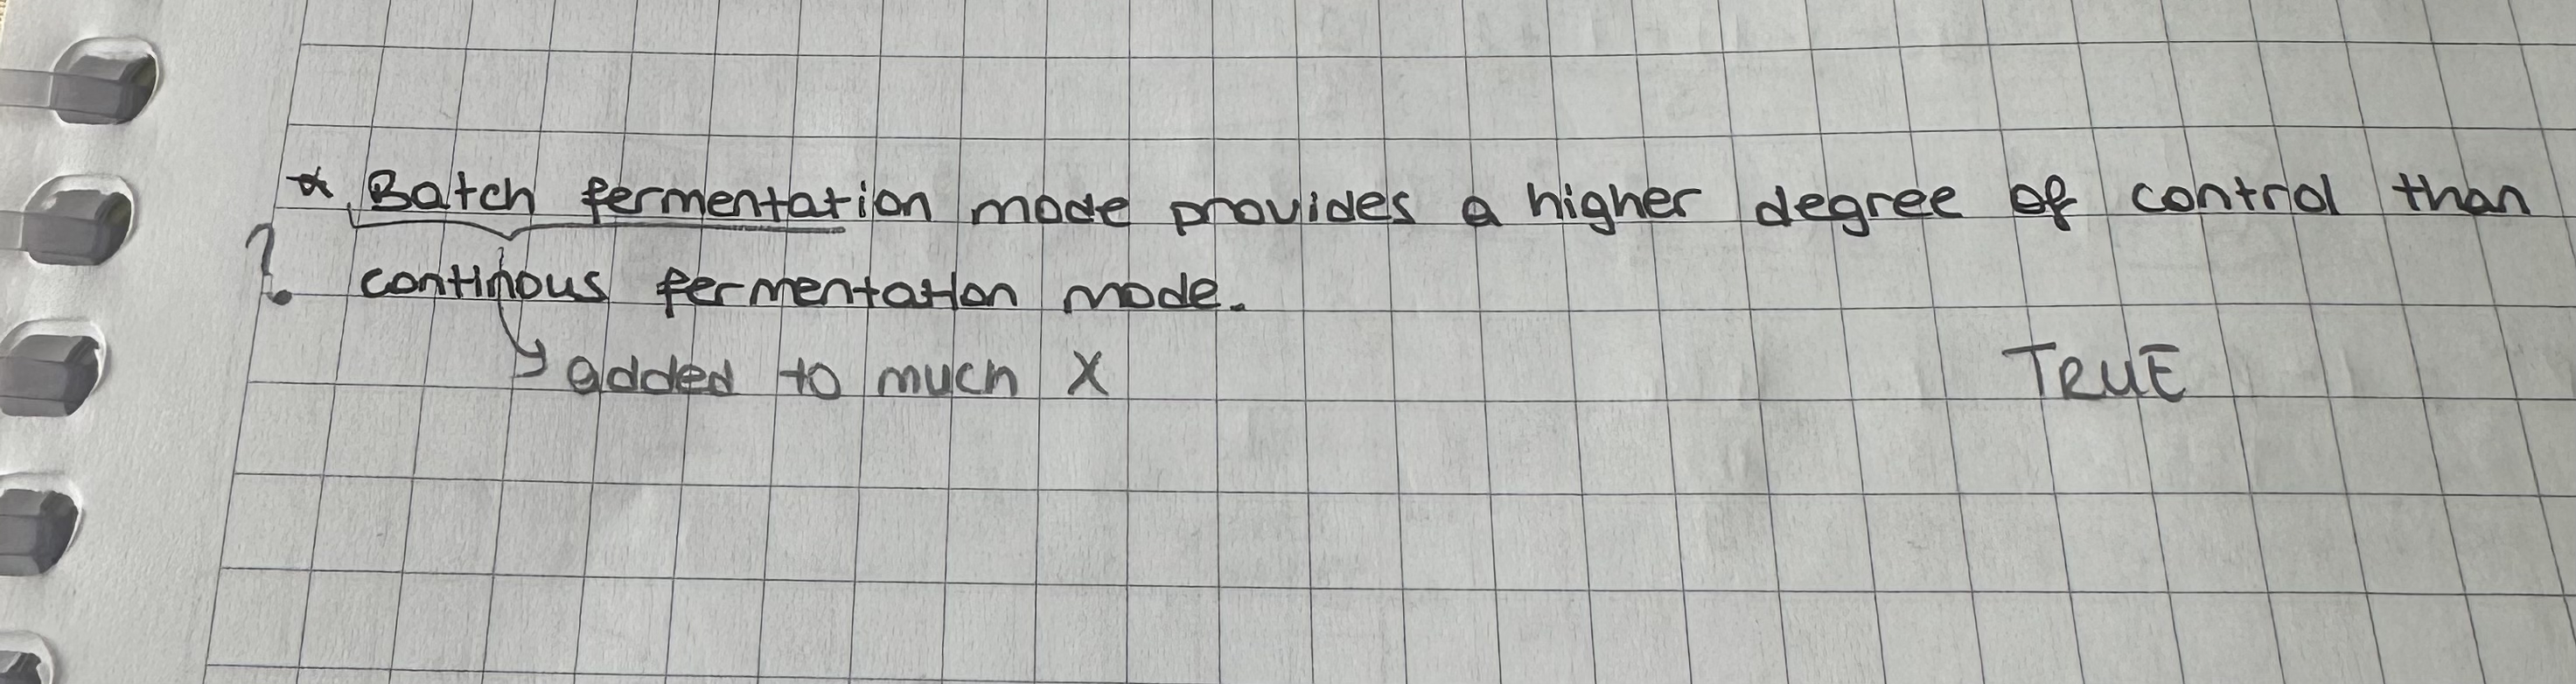 * Batch fermentation mode provides a higher degree of control than
? continous fermentation mode.
↳ added to much X
TRUE